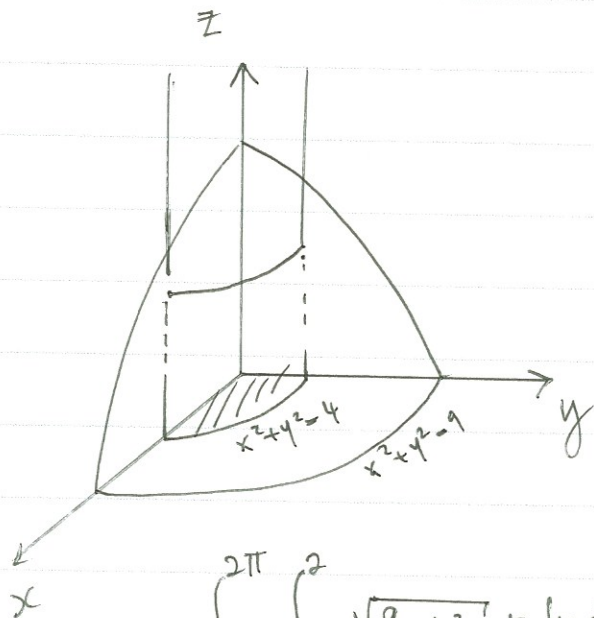 z
x²+y²=4
x²+y²=9
y
x
∫ 2π ∫ 2 √9